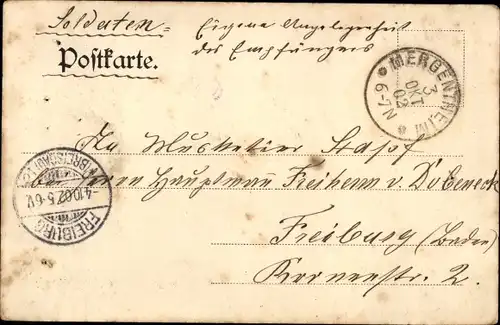 Soldaten=
Postkarte.
Eigene Angelegenheit
des Empfängers
MERGENTHEIM
3
OKT
02
6-7N
An Musketier Stapf
bei Hauptmann Freiherrn v. Dobeneck
Freiburg (Baden)
Kornerstr. 2.
FREIBURG
-4.10.02.5-6V.
(BREISGAU)